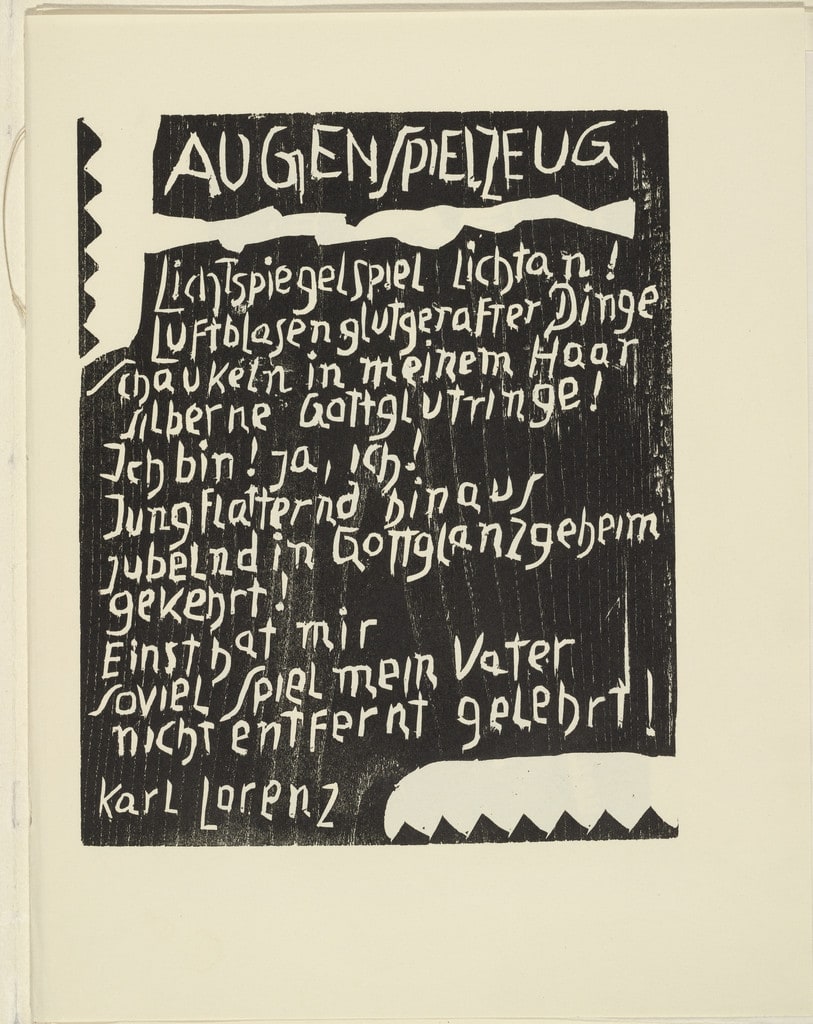 AUGENSPIELZEUG
Lichtspiegelspiel lichtan!
Luftblasen glutgerafter Dinge
schaukeln in meinem Haar
silberne Gottglutringe!
Ich bin! ja, ich!
Jung flatternd hinaus
jubelnd in Gottglanzgeheim
gekehrt!
Einst hat mir
soviel Spiel mein Vater
nicht entfernt gelehrt!
Karl Lorenz